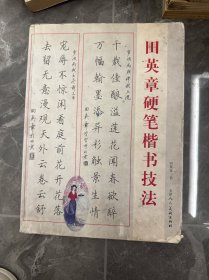 田英章硬笔楷书技法
千载優酿溢莲花闻春欲醉
万幅翰墨添异彩触景生情
宠辱不惊闲看庭前花开花落
去留无意漫观天外云卷云舒